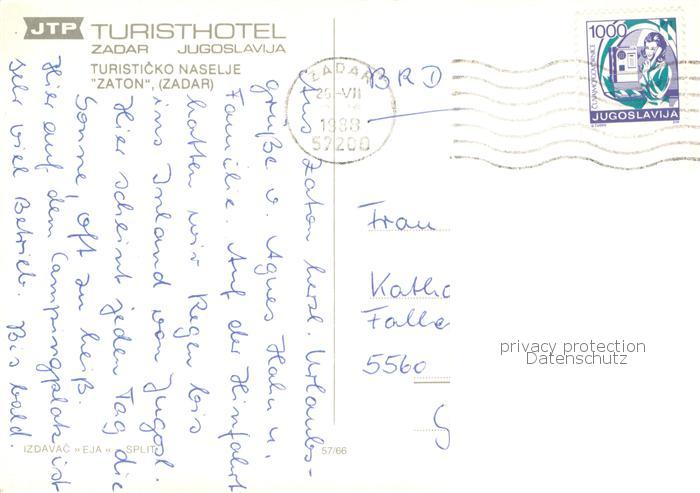 JTP TURISTHOTEL
ZADAR JUGOSLAVIJA
TURISTIČKO NASELJE
"ZATON", (ZADAR)
Aus Zaton herzl. Urlaubs-
grüße v. Agnes Hahn u.
Familie. Auf der Hinfahrt
hatten wir Regen bis
ins Inland von Jugosl.
Hier scheint jeden Tag die
Sonne, oft zu heiß.
Hier auf dem Campingplatz ist
sehr viel Betrieb. Bis bald.
ZADAR
57200
1000
JUGOSLAVIJA
BRD
Frau
Katha
Falle
5560
privacy protection
Datenschutz
IZDAVAČ »EJA« SPLIT
57/66